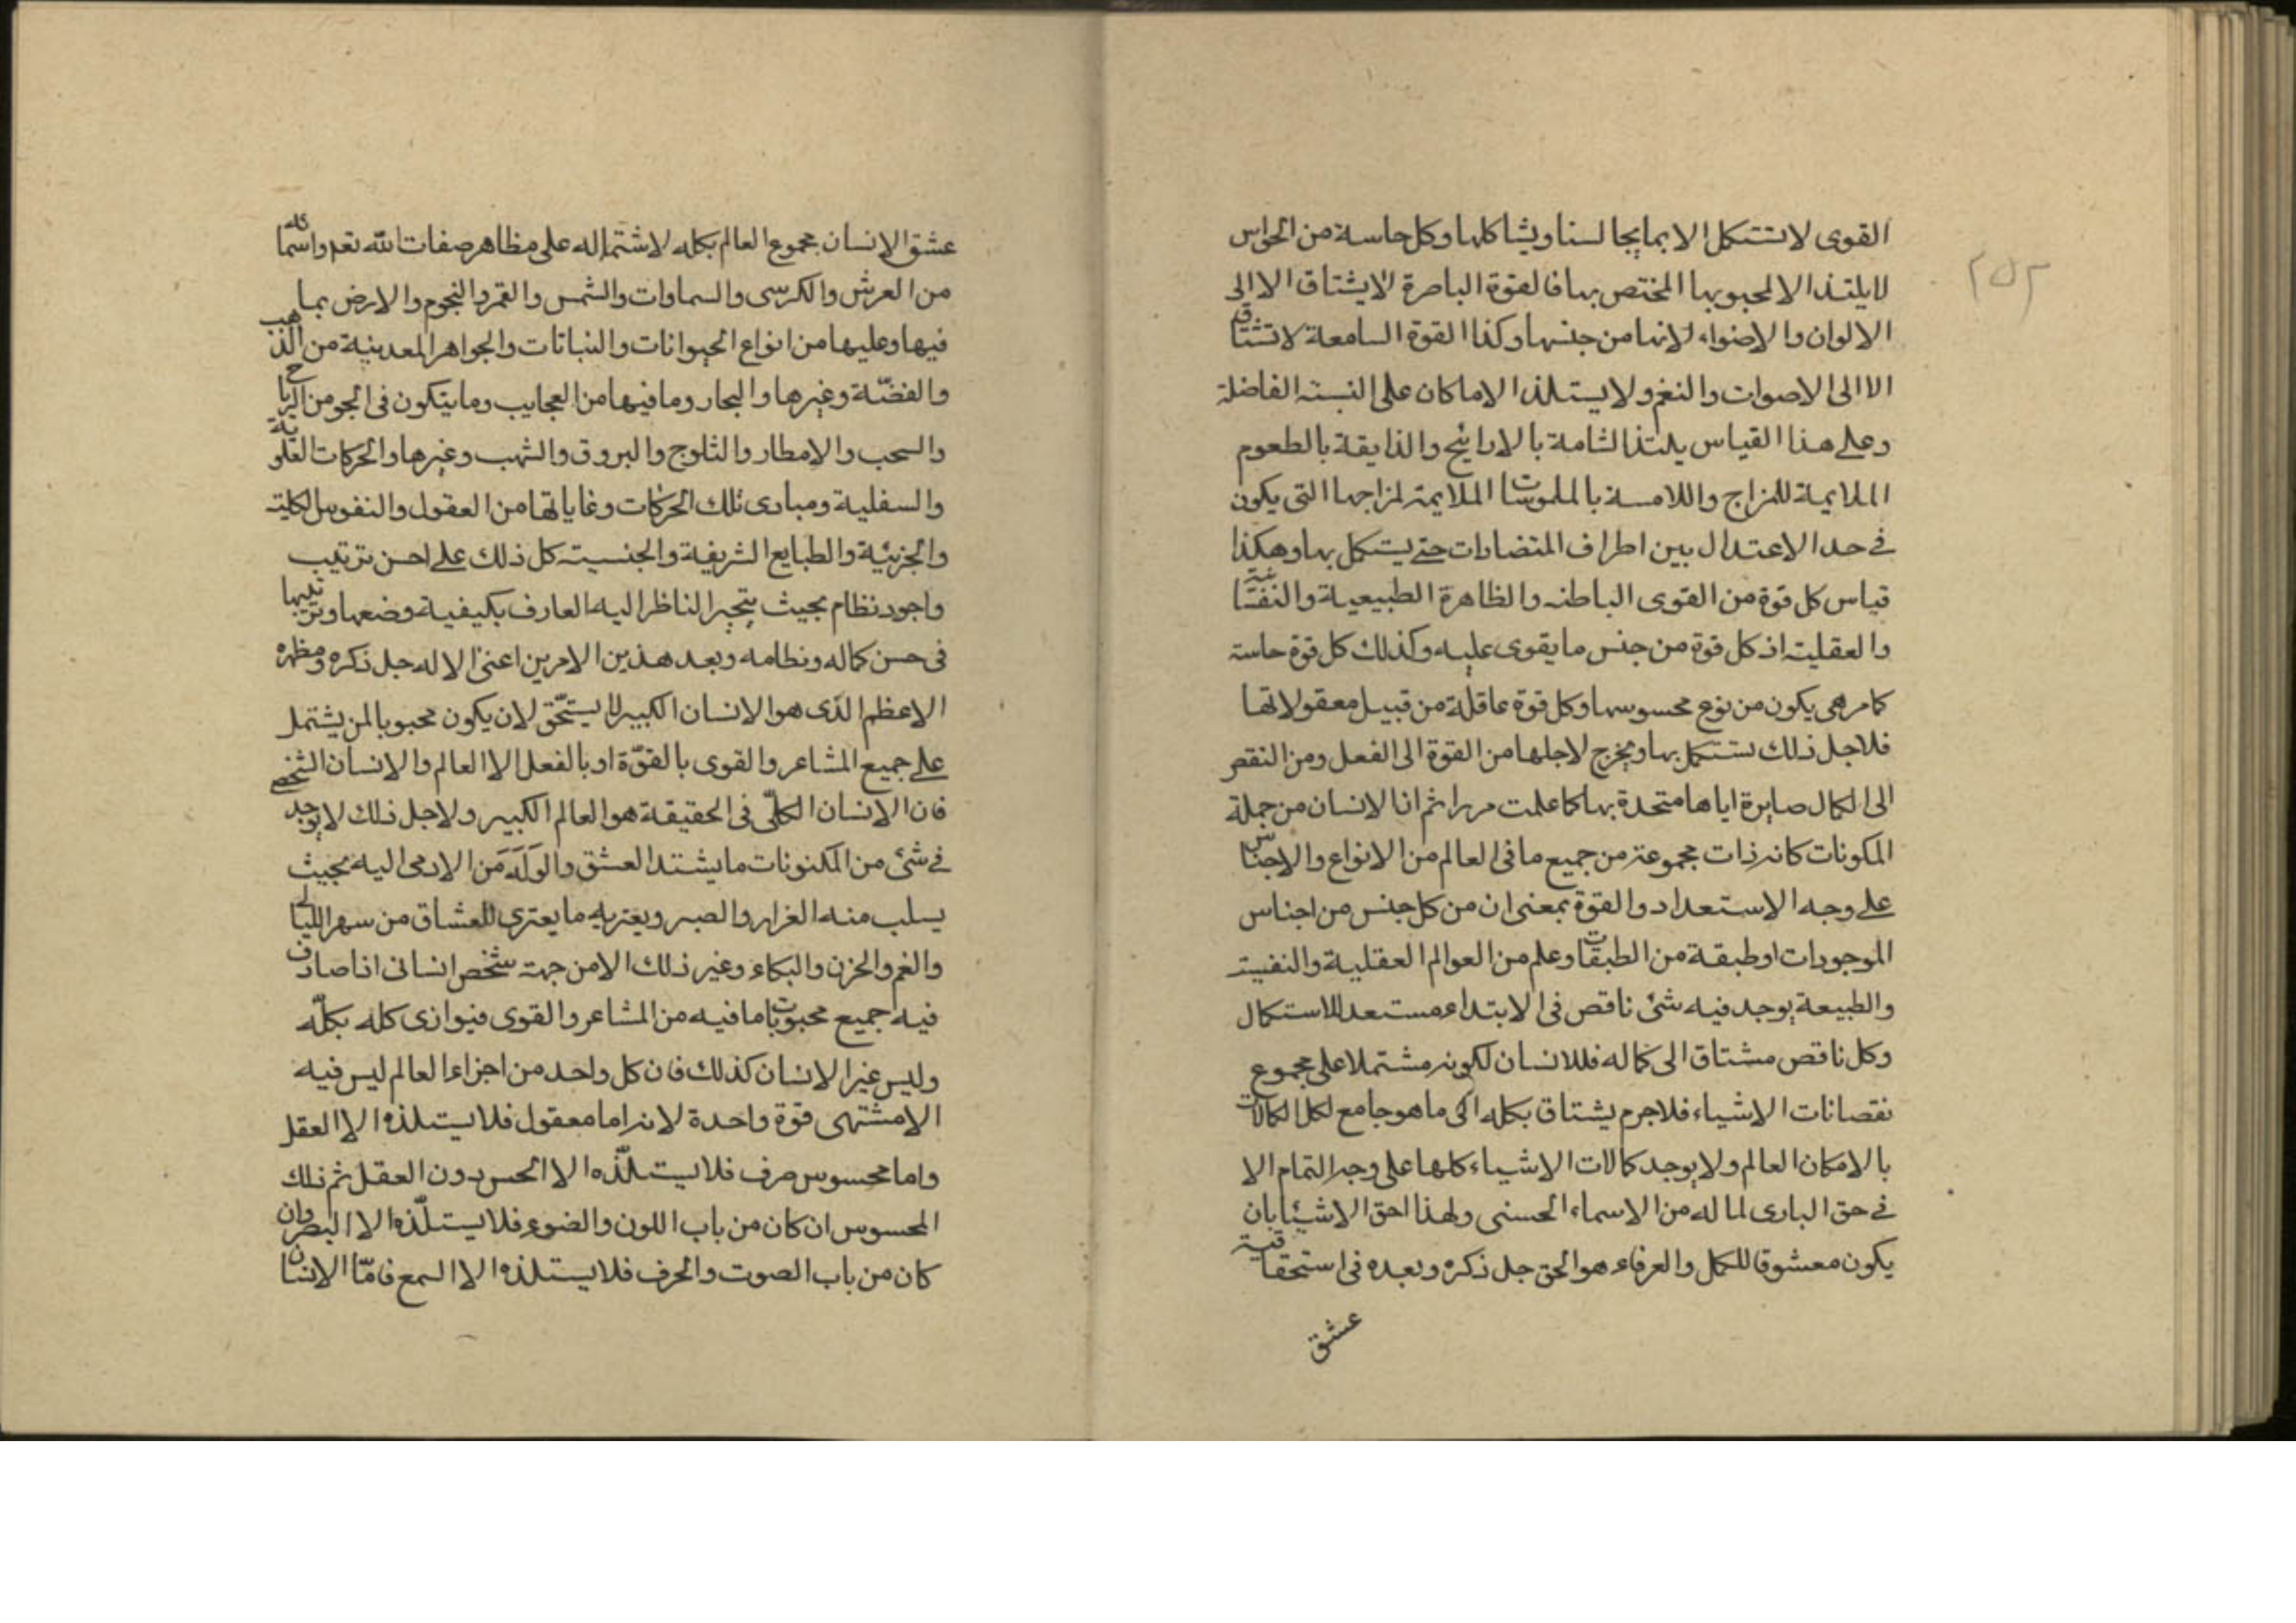 ٢٥٢
القوى لا تستكمل الا بما يجالسنا ويشاكلها وكل حاسة من الحواس
لا يلتذ الا لمحبوبها المختص بها فالقوة الباصرة لا يشتاق الا الى
الالوان والاضواء لانها من جنسها وكذا القوة السامعة لا تشتاق
الا الى الاصوات والنغم ولا يستلذ الا ما كان على النسبة الفاضلة
وعلى هذا القياس يلتذ الشامة بالاراييح والذايقة بالطعوم
الملايمة للمزاج واللامسة بالملموسات الملايمة لمزاجها التى يكون
فى حد الاعتدال بين اطراف المتضادات حتى يستكمل بها وهكذا
قياس كل قوة من القوى الباطنه والظاهرة الطبيعية والنفسانية
والعقلية اذ كل قوة من جنس ما يقوى عليه وكذلك كل قوة حاسة
كما مر هى يكون من نوع محسوسها وكل قوة عاقلة من قبيل معقولاتها
فلاجل ذلك تستكمل بها ويخرج لاجلها من القوة الى الفعل ومن النقص
الى الكمال صايرة اياها متحدة بها كما علمت مرارا ثم ان الانسان من جملة
المكونات كانه ذات مجموعة من جميع ما فى العالم من الانواع والاجناس
على وجه الاستعداد والقوة بمعنى ان من كل جنس من اجناس
الموجودات او طبقة من الطبقات وعلم من العوالم العقلية والنفسية
والطبيعة يوجد فيه شئ ناقص فى الابتداء مستعد للاستكمال
وكل ناقص مشتاق الى كماله فللانسان لكونه مشتملا على مجموع
نقصانات الاشياء فلاجرم يشتاق بكله الى ما هو جامع لكل الكمالات
بالامكان العالم ولا يوجد كمالات الاشياء كلها على وجه التمام الا
فى حق البارى لما له من الاسماء الحسنى ولهذا احق الاشيئا بان
يكون معشوقا للكمل والعرفاء هو الحق جل ذكره وبعده فى استحقاقية
عشق
عشق الانسان مجموع العالم بكله لاشتماله على مظاهر صفات الله تعم واسمائه
من العرش والكرسى والسماوات والشمس والقمر والنجوم والارض بما
فيها وعليها من انواع الحيوانات والنباتات والجواهر المعدنية من الذهب
والفضّة وغيرها والبحار وما فيها من العجايب وما يتكون فى الجو من الرياح
والسحب والامطار والثلوج والبروق والشهب وغيرها والحركات العلوية
والسفلية ومبادى تلك الحركات وغاياتها من العقول والنفوس الكلية
والجزئية والطبايع الشريفة والجنسية كل ذلك على احسن ترتيب
واجود نظام بحيث يتحير الناظر اليه العارف بكيفية وضعها وترتيبها
فى حسن كماله ونظامه وبعد هذين الامرين اعنى الاله جل ذكره ومظهره
الاعظم الذى هو الانسان الكبير لا يستحّق لان يكون محبوبا لمن يشتمل
على جميع المشاعر والقوى بالقوّة او بالفعل الا العالم والانسان الشخصى
فان الانسان الكلّى فى الحقيقة هو العالم الكبير ولاجل ذلك لا يوجد
فى شئ من المكنونات ما يشتد العشق والوَلَهَ مَن الادمى اليه بحيث
يسلب منه الغرار والصبر ويعتريه ما يعترى للعشاق من سهر الليالى
والغم والحزن والبكاء وغير ذلك الا من جهة شخص انسانى اذا صادف
فيه جميع محبوبات ما فيه من المشاعر والقوى فيوازى كله بكلّه
وليس غير الانسان كذلك فان كل واحد من اجزاء العالم ليس فيه
الا مشتهى قوة واحدة لانه اما معقول فلا يستلذه الا العقل
واما محسوس صرف فلا يستلذّه الا الحس بدون العقل ثم ذلك
المحسوس ان كان من باب اللون والضوء فلا يستلّذه الا البصر وان
كان من باب الصوت والحرف فلا يستلذه الا السمع فامّا الانسان